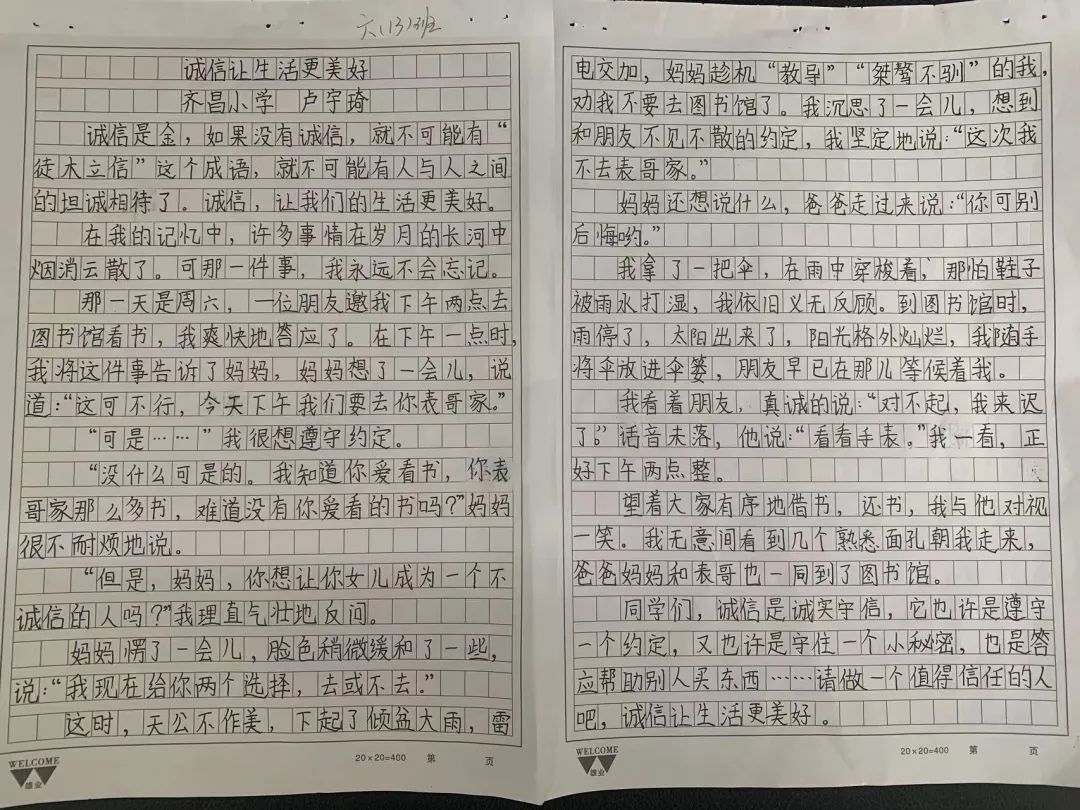 六(13)班
诚信让生活更美好
齐昌小学 卢宇琦
诚信是金，如果没有诚信，就不可能有“
徒木立信”这个成语，就不可能有人与人之间
的坦诚相待了。诚信，让我们的生活更美好。
在我的记忆中，许多事情在岁月的长河中
烟消云散了。可那一件事，我永远不会忘记。
那一天是周六，一位朋友邀我下午两点去
图书馆看书，我爽快地答应了。在下午一点时，
我将这件事告诉了妈妈，妈妈想了一会儿，说
道：“这可不行，今天下午我们要去你表哥家。”
“可是……”我很想遵守约定。
“没什么可是的。我知道你爱看书，你表
哥家那么多书，难道没有你爱看的书吗？”妈妈
很不耐烦地说。
“但是，妈妈，你想让你女儿成为一个不
诚信的人吗？”我理直气壮地反问。
妈妈愣了一会儿，脸色稍微缓和了一些，
说：“我现在给你两个选择，去或不去。”
这时，天公不作美，下起了倾盆大雨，雷
WELCOME
雄业
20×20=400 第 页
电交加，妈妈趁机“教导”“桀骜不驯”的我，
劝我不要去图书馆了。我沉思了一会儿，想到
和朋友不见不散的约定，我坚定地说：“这次我
不去表哥家。”
妈妈还想说什么，爸爸走过来说：“你可别
后悔哟。”
我拿了一把伞，在雨中穿梭着，那怕鞋子
被雨水打湿，我依旧义无反顾。到图书馆时，
雨停了，太阳出来了，阳光格外灿烂，我随手
将伞放进伞篓，朋友早已在那儿等候着我。
我看着朋友，真诚的说：“对不起，我来迟
了。”话音未落，他说：“看看手表。”我一看，正
好下午两点整。
望着大家有序地借书，还书，我与他对视
一笑。我无意间看到几个熟悉面孔朝我走来，
爸爸妈妈和表哥也一同到了图书馆。
同学们，诚信是诚实守信，它也许是遵守
一个约定，又也许是守住一个小秘密，也是答
应帮助别人买东西……请做一个值得信任的人
吧，诚信让生活更美好。
WELCOME
雄业
20×20=400 第 页